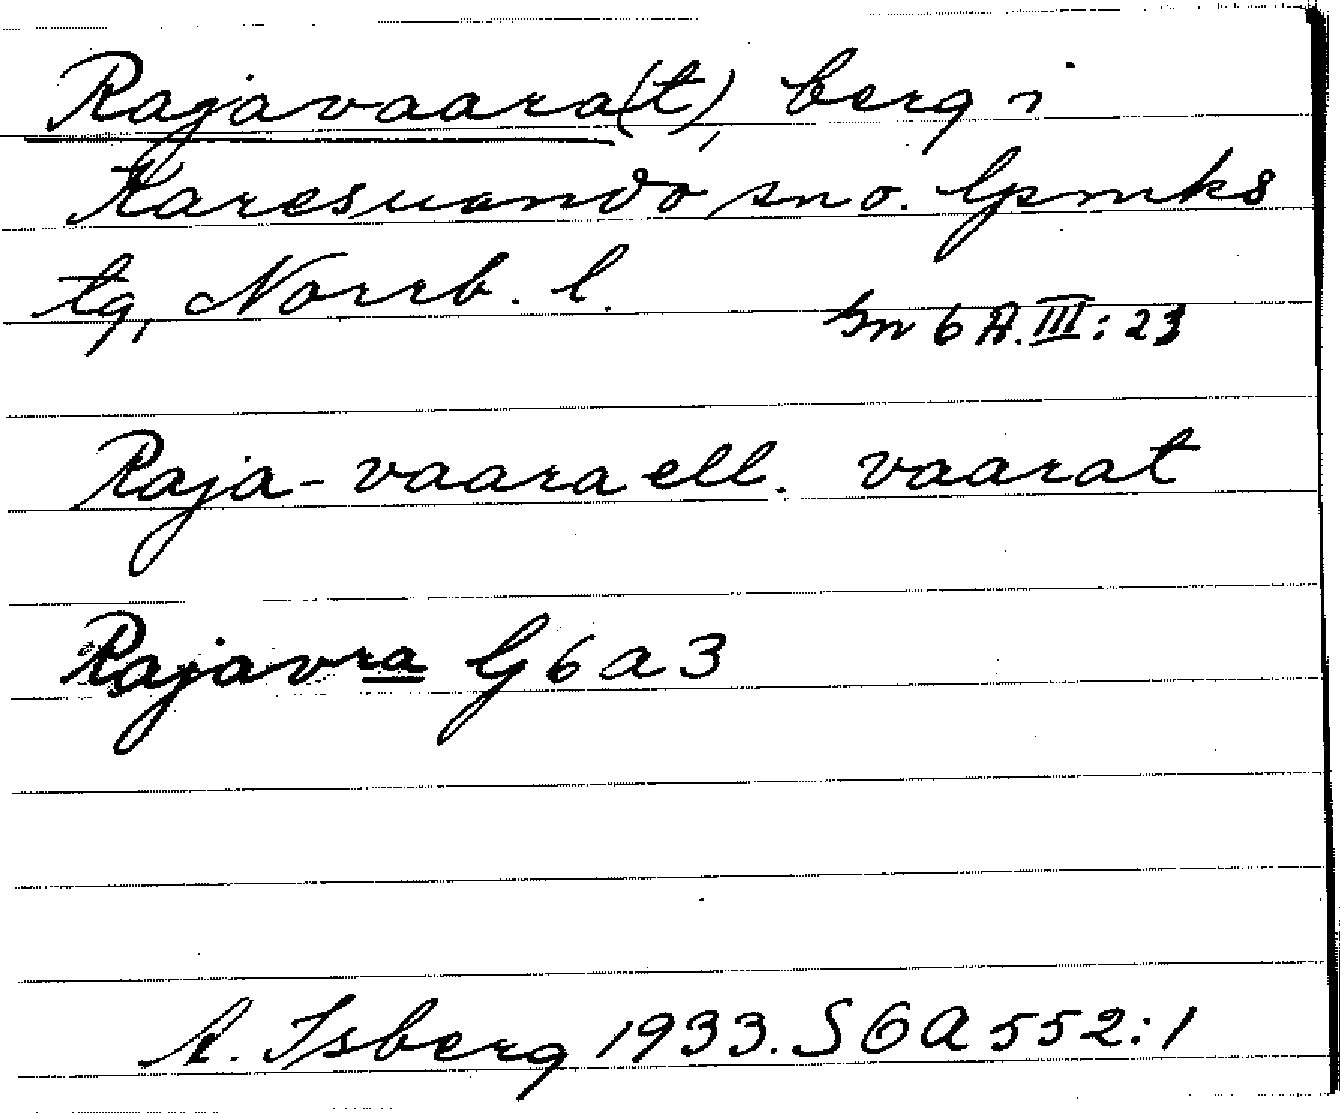 Rajavaara(t), berg i
Karesuando sn o. lpmks
tg, Norrb. l.
Sn 6 A. III: 23
Raja-vaara ell. vaarat
Rajavra G 6 a 3
A. Isberg 1933. SOA 552:1